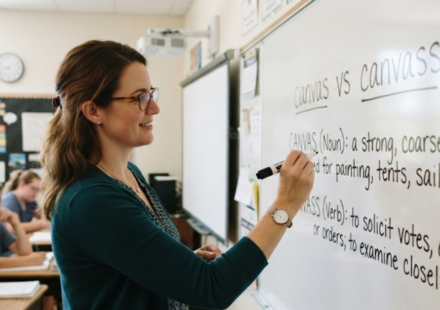 canvas vs canvass
CANVAS (Noun): a strong, coarse
for painting, tents, sail
ASS (Verb): to solicit votes,
or orders; to examine closel